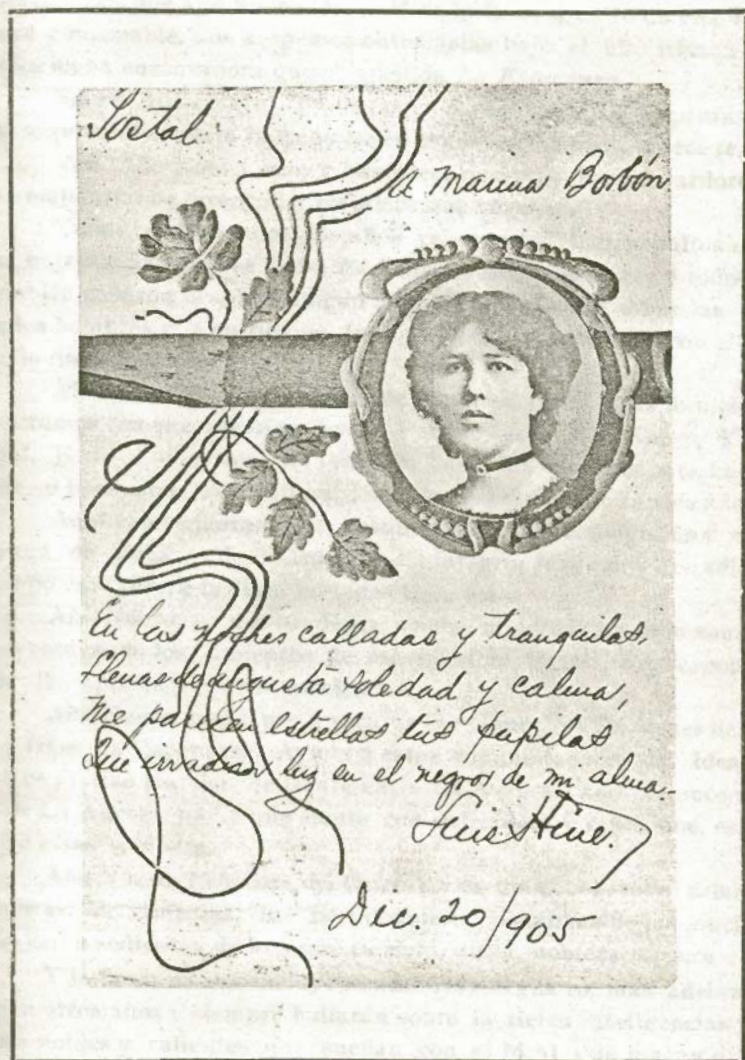 Postal
A Marina Borbón
En las noches calladas y tranquilas,
llenas de augusta soledad y calma,
me parecen estrellas tus pupilas
que irradian luz en el negror de mi alma.
Luis Hine.
Dic. 20/905